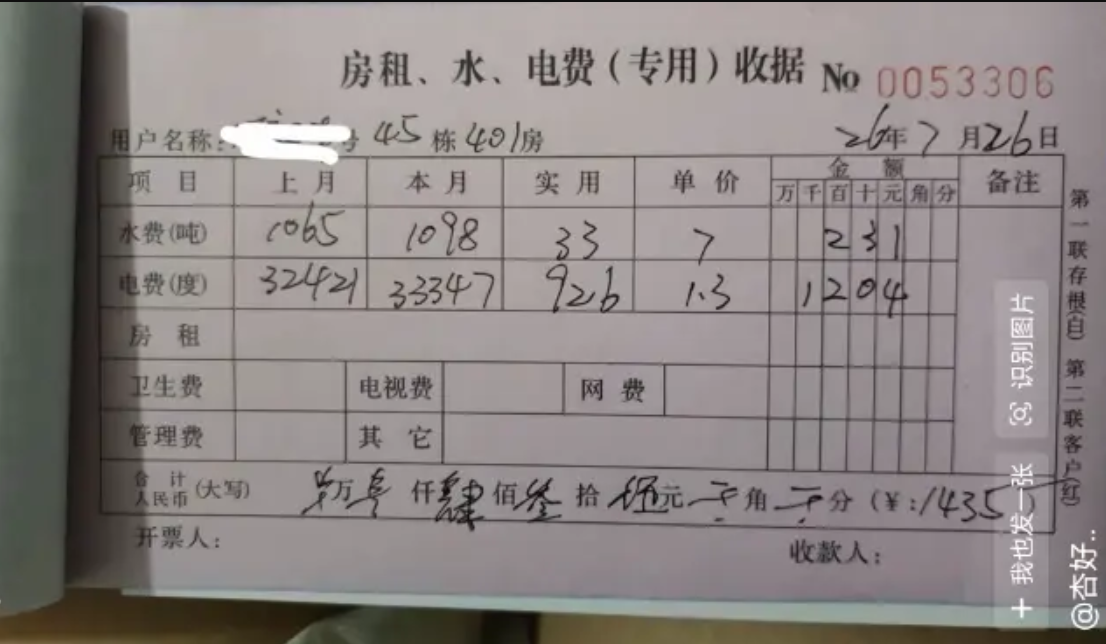 房租、水、电费(专用)收据 No 0053306
用户名称: 号 45栋401房 26年7月26日
项目 上月 本月 实用 单价 金额 备注
万 千 百 十 元 角 分
水费(吨) 1065 1098 33 7 2 3 1
电费(度) 32421 33347 926 1.3 1 2 0 4
房租
卫生费 电视费 网费
管理费 其它
合计人民币(大写) 零万壹仟肆佰叁拾伍元零角零分(¥:1435)
开票人: 收款人:
第一联存根(白) 第二联客户(红)
识别图片
+ 我也发一张
@杏好..